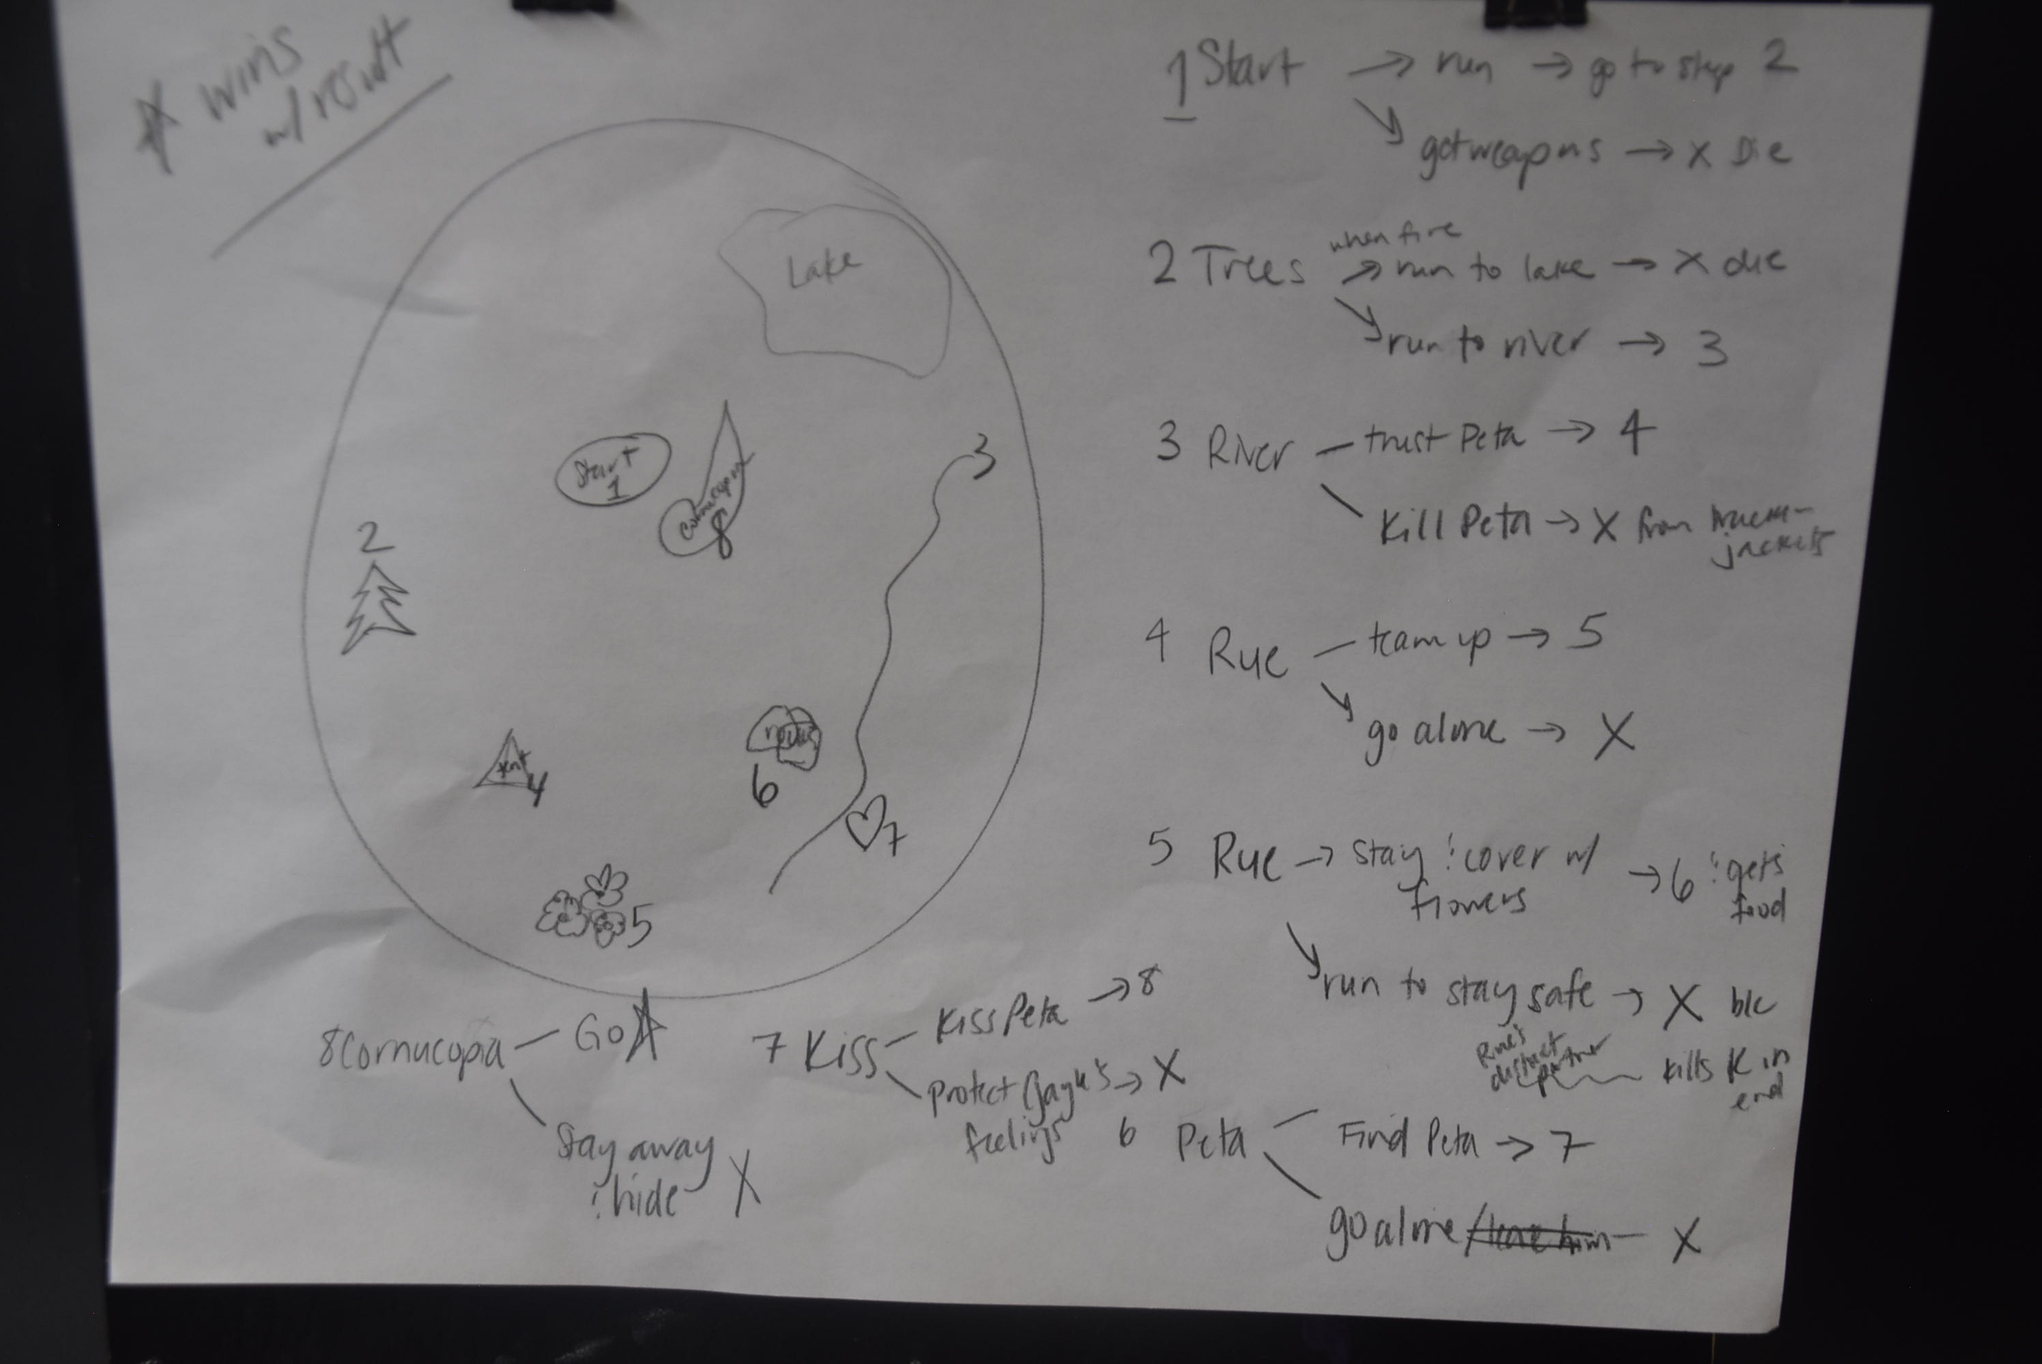 ☆ wins
w/ result
Lake
Start
1
Cornucopia
8
3
2
tent
4
6
7
5
1 Start → run → go to step 2
get weapons → X Die
2 Trees when fire → run to lake → X die
run to river → 3
3 River – trust Peta → 4
Kill Peta → X from tracker-
jackers
4 Rue – team up → 5
go alone → X
5 Rue → stay & cover w/
flowers → 6 & gets
food
run to stay safe → X b/c
Rue's
district
partner
kills K in
end
6 Peta Find Peta → 7
go alone X
7 Kiss – Kiss Peta → 8
protect Gayle's → X
feelings
8 Cornucopia – Go ☆
Stay away
& hide X